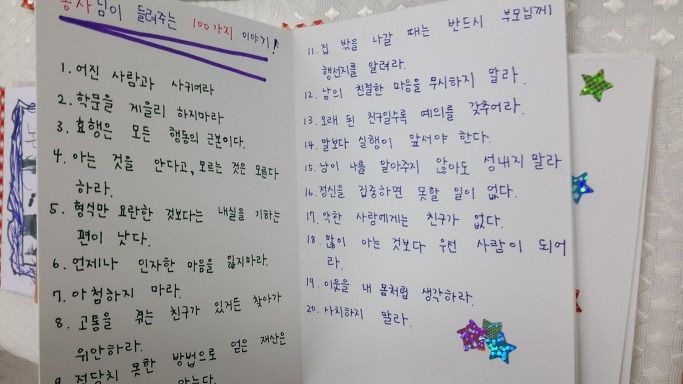 공자님이 들려주는 100가지 이야기!
1. 어진 사람과 사귀어라
2. 학문을 게을리 하지마라
3. 효행은 모든 행동의 근본이다.
4. 아는 것을 안다고, 모르는 것은 모른다
하라.
5. 형식만 요란한 것보다는 내실을 기하는
편이 낫다.
6. 언제나 인자한 마음을 잃지마라.
7. 아첨하지 마라.
8. 고통을 겪는 친구가 있거든 찾아가
위안하라.
9. 정당치 못한 방법으로 얻은 재산은
않는다.
11. 집 밖을 나갈 때는 반드시 부모님께
행선지를 알려라.
12. 남의 친절한 마음을 무시하지 말라.
13. 오래 된 친구일수록 예의를 갖추어라.
14. 말보다 실행이 앞서야 한다.
15. 남이 나를 알아주지 않아도 성내지 말라
16. 정신을 집중하면 못할 일이 없다.
17. 악한 사람에게는 친구가 없다.
18 많이 아는 것보다 우선 사람이 되어
라.
19. 이웃을 내 몸처럼 생각하라.
20. 사치하지 말라.